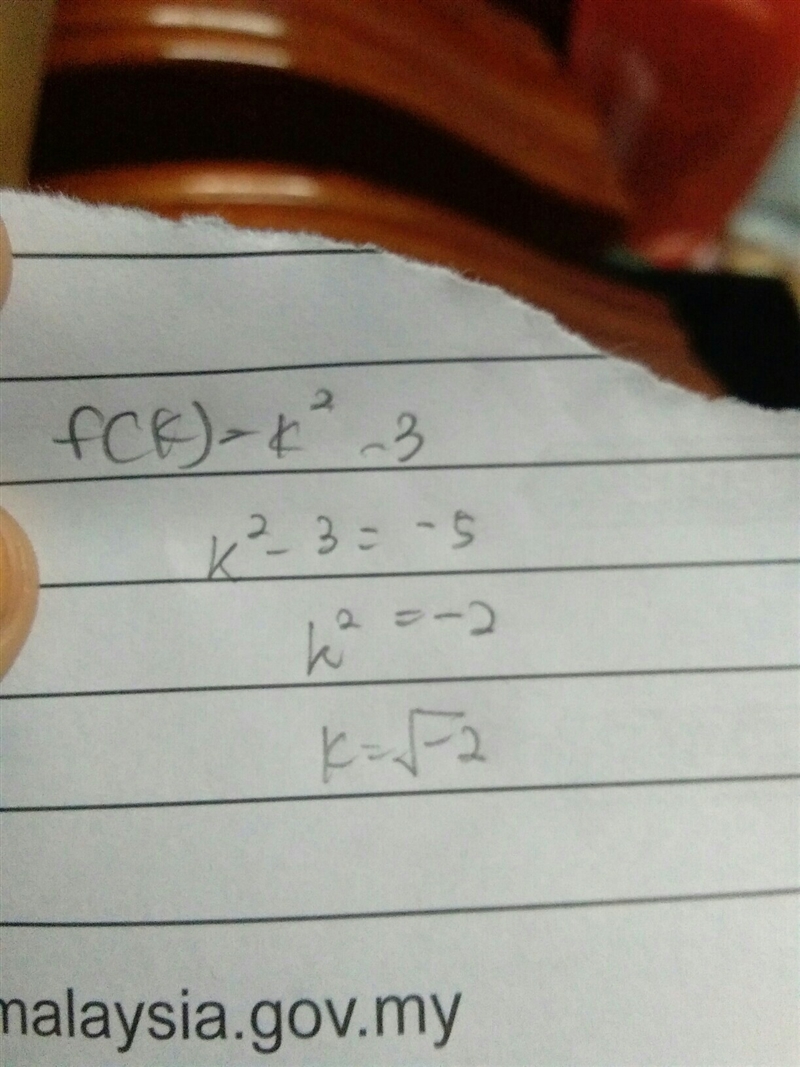 f(k) = k² - 3
k² - 3 = -5
k² = -2
k = √-2
malaysia.gov.my